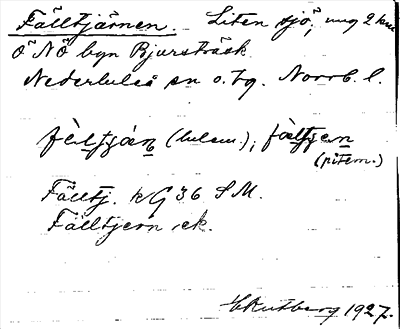 Fälltjärnen. Liten sjö, ung 2 km
ö NÖ byn Bjursträsk
Nederluleå sn o. tg. Norrb. l.
fälltjän (lulem.); fälltjern
(pitem.)
Fälltj. kG 36 SM.
Fälltjern ek.
E Rutberg 1927.